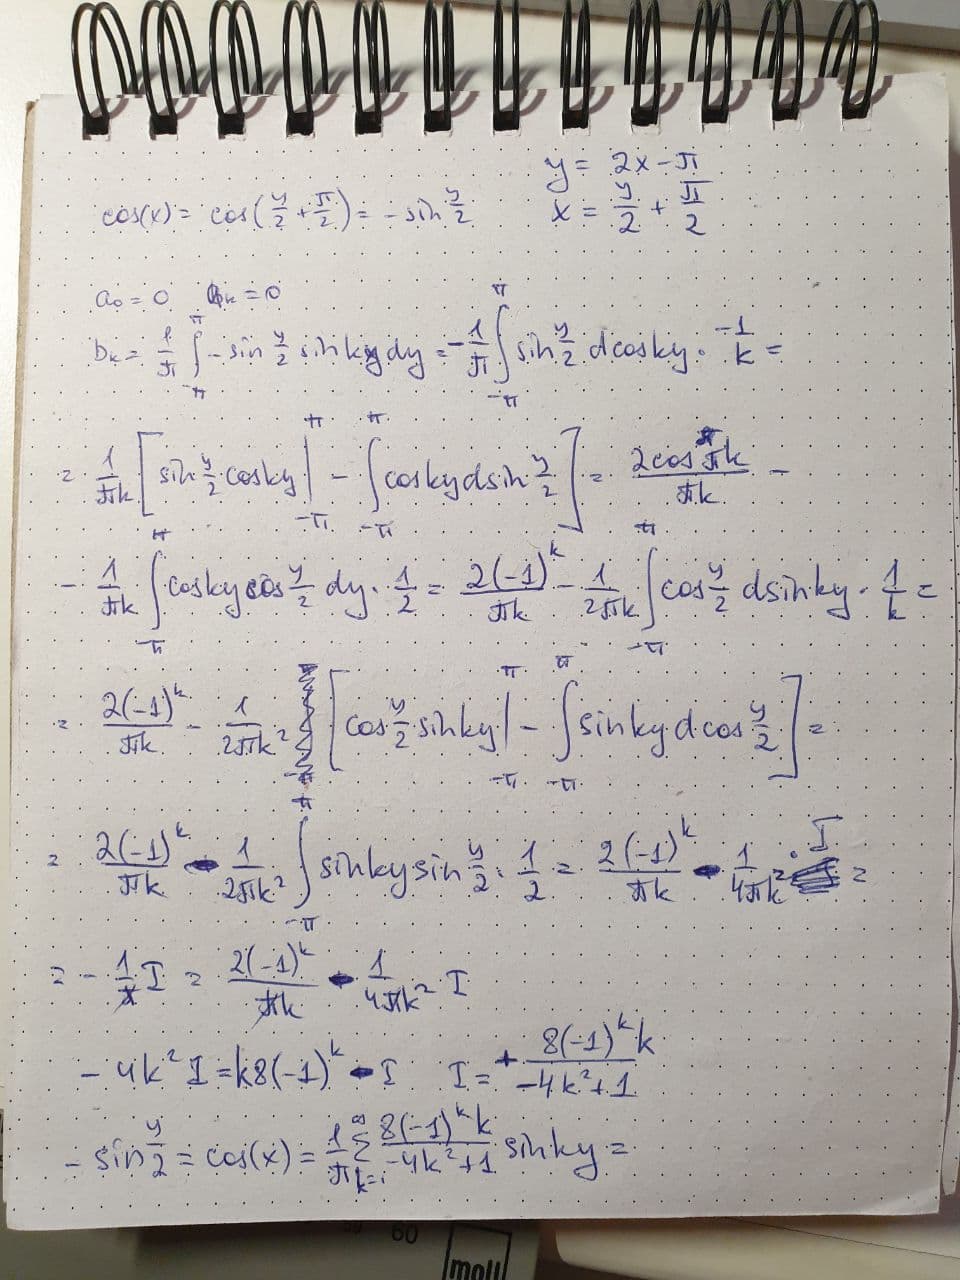 y = 2x - π
cos(x) = cos(y/2 + π/2) = - sin y/2
x = y/2 + π/2
a₀ = 0 aₖ = 0
bₖ = 1/π ∫_{-π}^{π} - sin y/2 sin ky dy = - 1/π ∫_{-π}^{π} sin y/2 d cos ky · -1/k =
= 1/πk [ sin y/2 cos ky |_{-π}^{π} - ∫_{-π}^{π} cos ky d sin y/2 ] = 2cos πk / πk -
- 1/πk ∫_{-π}^{π} cos ky cos y/2 dy · 1/2 = 2(-1)^k / πk - 1/2πk ∫_{-π}^{π} cos y/2 d sin ky · 1/k =
= 2(-1)^k / πk - 1/2πk² [ cos y/2 · sin ky |_{-π}^{π} - ∫_{-π}^{π} sin ky d cos y/2 ] =
= 2(-1)^k / πk - 1/2πk² ∫_{-π}^{π} sin ky sin y/2 · 1/2 = 2(-1)^k / πk - 1/4πk² · I =
= - 1/π I = 2(-1)^k / πk - 1/4πk² I
- 4k² I = k8(-1)^k - I I = + 8(-1)^k k / -4k² + 1
- sin y/2 = cos(x) = 1/π Σ_{k=1}^{∞} 8(-1)^k k / -4k² + 1 sin ky =
60
moli